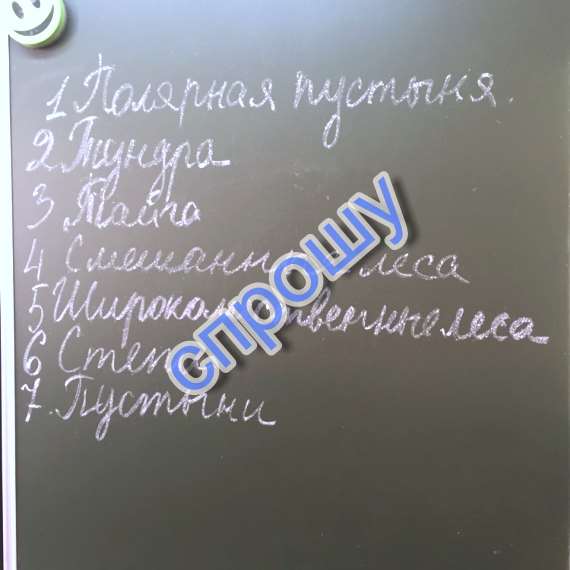 1 Полярная пустыня.
2 Тундра
3 Тайга
4 Смешанные леса
5 Широколиственные леса
6 Степи
7 Пустыни
спрошу